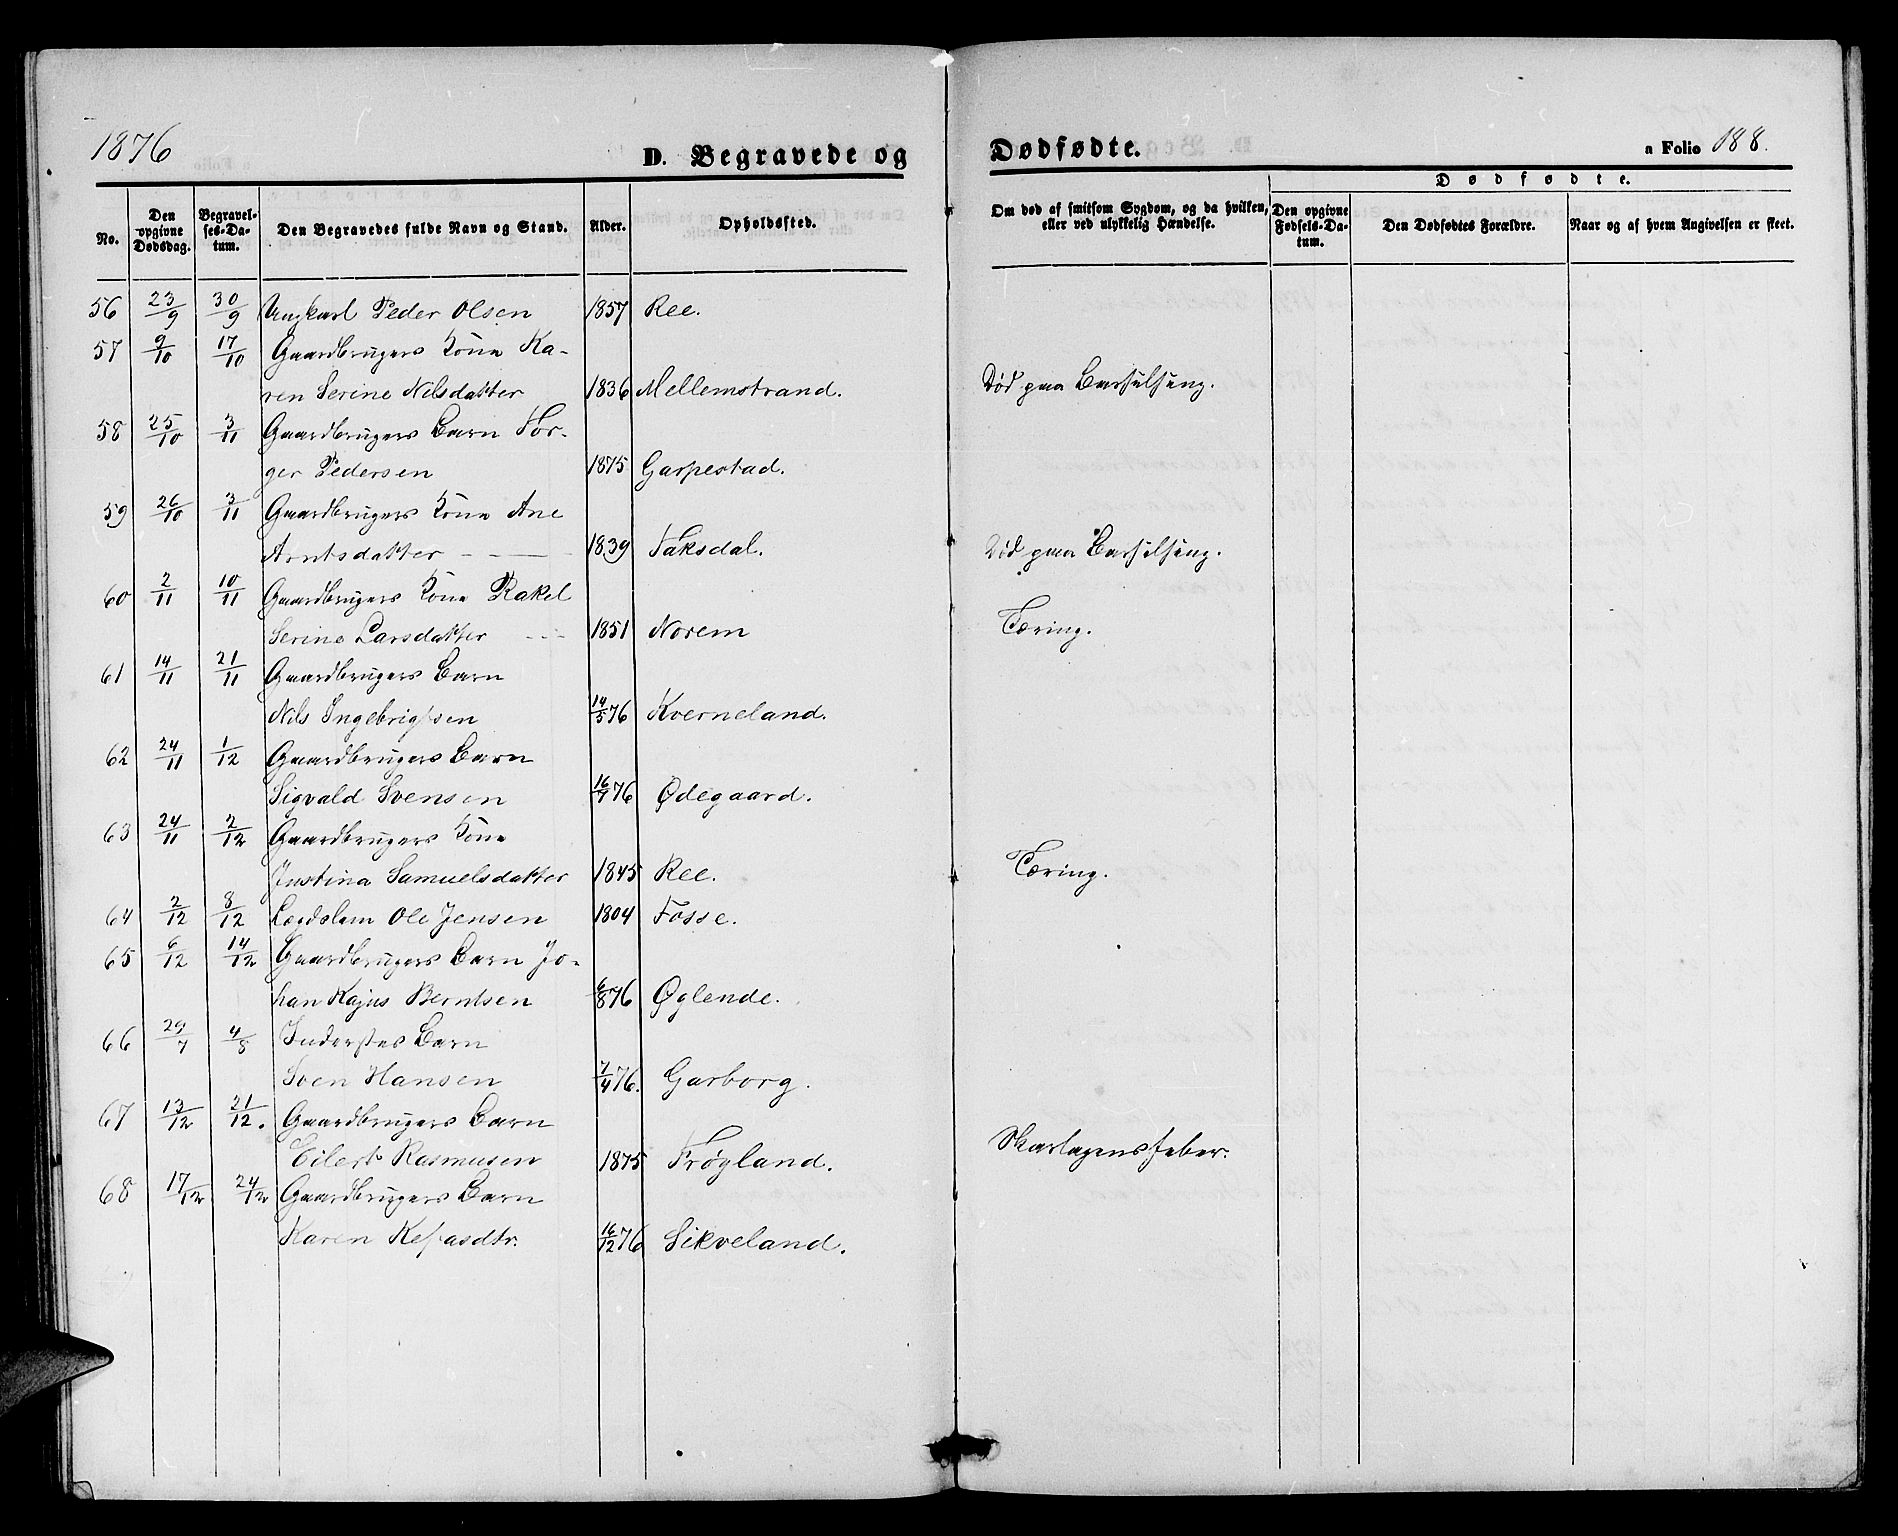 1876
D. Begravede og Dødfødte.
a Folio 188.
No.
Den opgivne Dødsdag.
Begravelses-Datum.
Den Begravedes fulde Navn og Stand.
Alder.
Opholdssted.
Om død af smitsom Sygdom, og da hvilken, eller ved ulykkelig Hændelse.
Dødfødte.
Den opgivne Fødsels-Datum.
Den Dødfødtes Forældre.
Naar og af hvem Angivelsen er skeet.
56 23/9 30/9 Ungkarl Peder Olsen 1857 Ree.
57 9/10 17/10 Gaardbrugers Kone Ka-
ren Serine Nilsdatter 1836 Mellemstrand. Død paa Barselseng.
58 25/10 3/11 Gaardbrugers Barn Tor-
ger Pedersen 1875 Garpestad.
59 26/10 3/11 Gaardbrugers Kone Ane
Arntsdatter - - — 1839 Taksdal. Død paa Barselseng.
60 2/11 10/11 Gaardbrugers Kone Rakel
Serine Larsdatter - - - 1851 Norem Tæring.
61 14/11 21/11 Gaardbrugers Barn
Nils Ingebrigtsen 14/5 76 Kverneland.
62 24/11 1/12 Gaardbrugers Barn
Sigvald Svensen 16/7 76 Ødegaard.
63 24/11 2/12 Gaardbrugers Kone
Justina Samuelsdatter 1845 Ree. Tæring.
64 2/12 8/12 Lægdslem Ole Jensen 1804 Fosse.
65 6/12 14/12 Gaardbrugers Barn Jo-
han Kajus Berntsen 6/8 76 Øglende.
66 29/7 4/8 Inderstes Barn
Sven Hansen 7/4 76. Garborg.
67 13/12 21/12. Gaardbrugers Barn
Eilert Rasmusen 1875 Frøyland. Skarlagensfeber.
68 17/12 24/12 Gaardbrugers Barn
Karen Kefasdtr. 16/12 76 Sikveland.